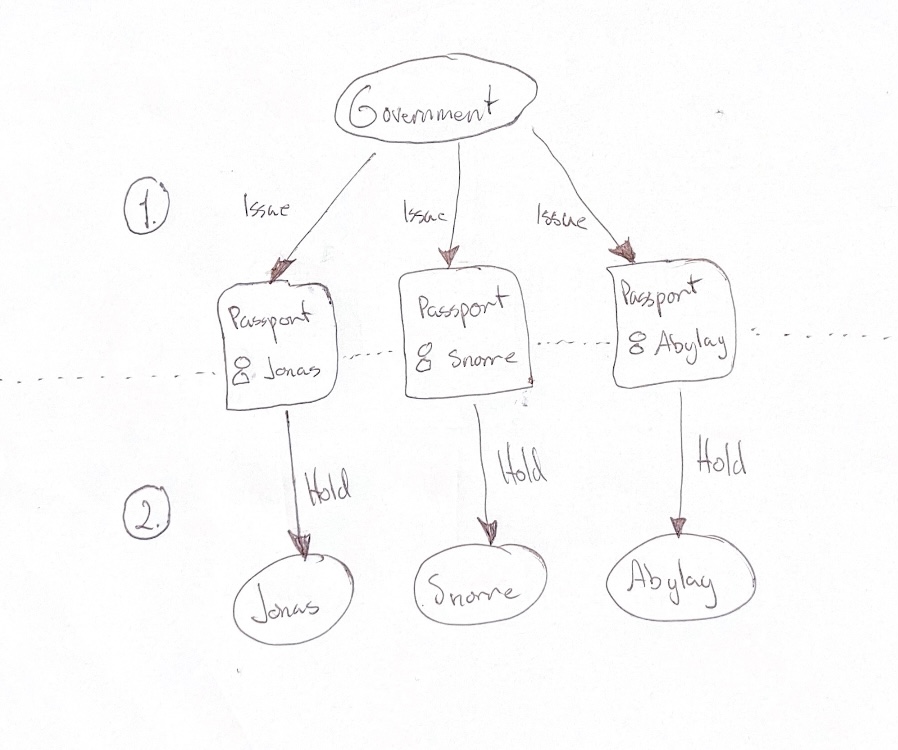 Government
1.
Issue
Issue
Issue
Passport
Jonas
Passport
Snorre
Passport
Abylay
Hold
Hold
Hold
2.
Jonas
Snorre
Abylay